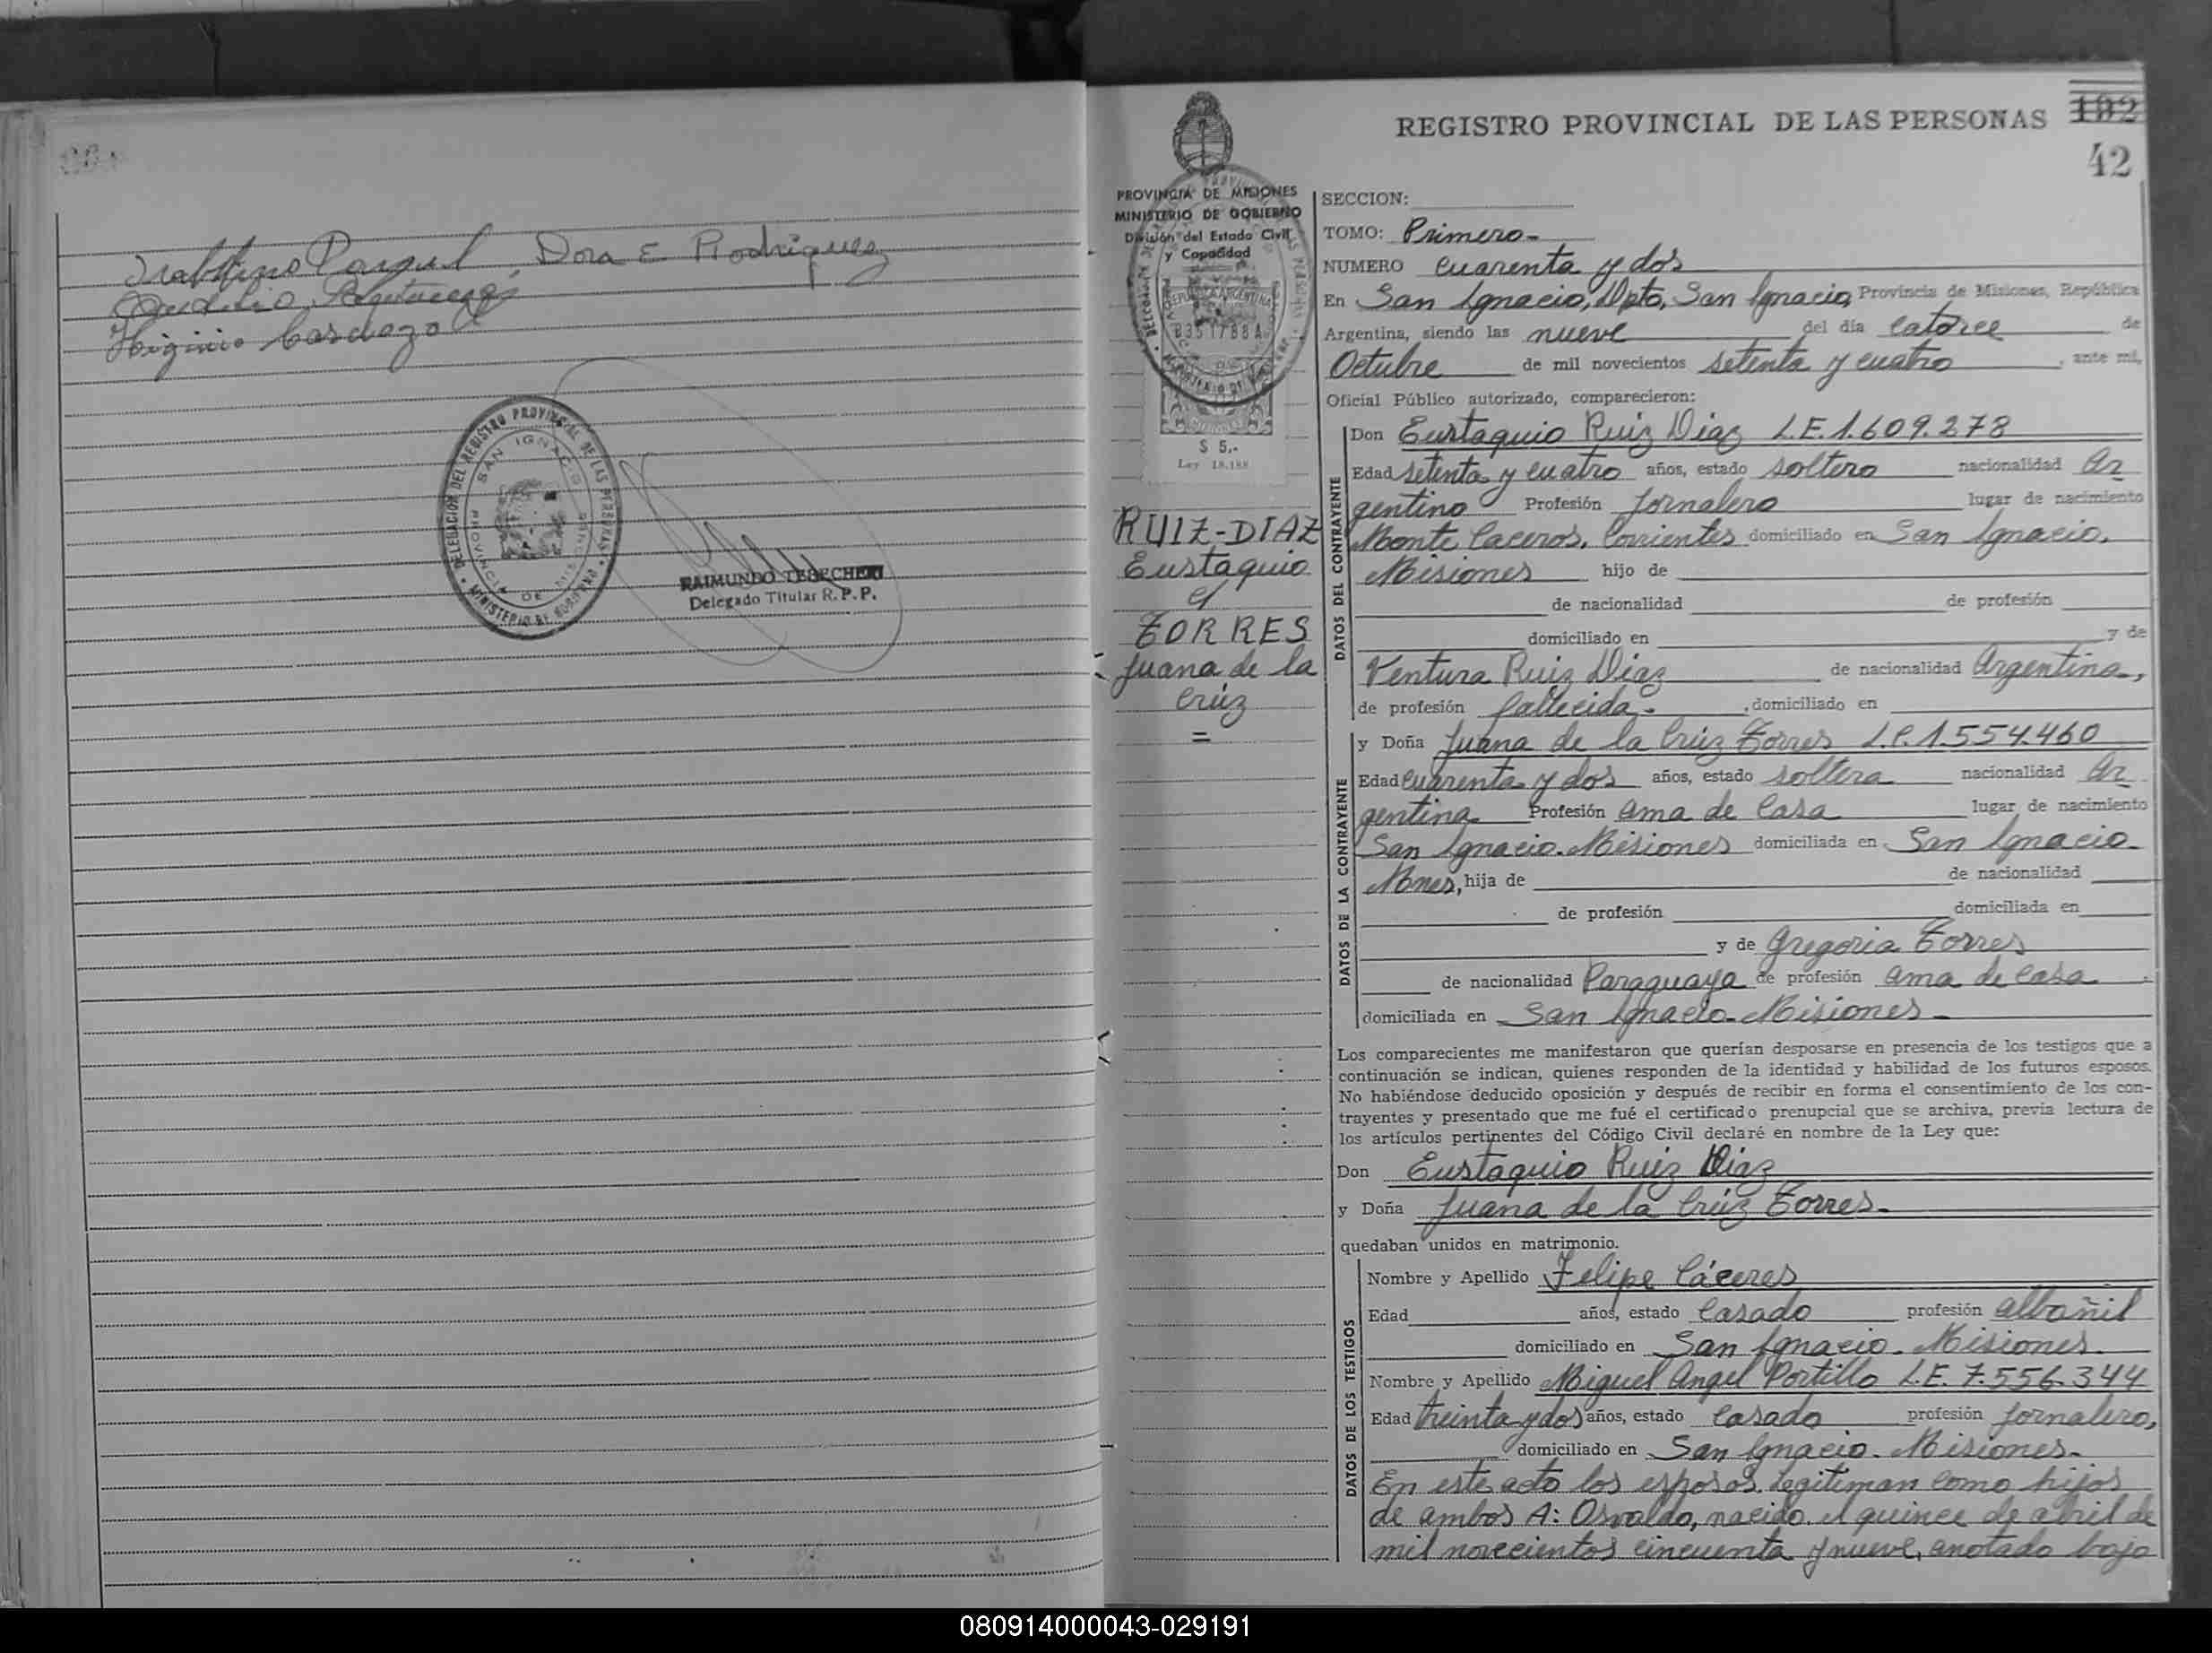 Dora E Rodriguez
Higinio Cardozo
DELEGACION DEL REGISTRO PROVINCIAL DE LAS PERSONAS
SAN IGNACIO
PROVINCIA DE MISIONES
MINISTERIO DE GOBIERNO
RAIMUNDO
Delegado Titular R.P.P.
REGISTRO PROVINCIAL DE LAS PERSONAS 192
42
PROVINCIA DE MISIONES
MINISTERIO DE GOBIERNO
División del Estado Civil
y Capacidad
REPUBLICA ARGENTINA
$ 5.-
Ley 18.188
RUIZ-DIAZ
Eustaquio
y
TORRES
Juana de la
Crúz
=
SECCION:
TOMO: Primero-
NUMERO Cuarenta y dos
En San Ignacio, Dpto, San Ignacio, Provincia de Misiones, República
Argentina, siendo las nueve del día Catorce de
Octubre de mil novecientos setenta y cuatro, ante mi,
Oficial Público autorizado, comparecieron:
DATOS DEL CONTRAYENTE
Don Eustaquio Ruiz Diaz L.E.1.609.278
Edad setenta y cuatro años, estado soltero nacionalidad Ar
gentino Profesión Jornalero lugar de nacimiento
Monte Caceros, Corrientes domiciliado en San Ignacio.
Misiones hijo de
de nacionalidad de profesión
domiciliado en y de
Ventura Ruiz Diaz de nacionalidad Argentina.,
de profesión fallecida-, domiciliado en
DATOS DE LA CONTRAYENTE
y Doña Juana de la Crúz Torres L.C.1.554.460
Edad Cuarenta y dos años, estado soltera nacionalidad Ar
gentina Profesión ama de Casa lugar de nacimiento
San Ignacio. Misiones domiciliada en San Ignacio-
Mnes, hija de de nacionalidad
de profesión domiciliada en
y de Gregoria Torres
de nacionalidad Paraguaya de profesión ama de Casa
domiciliada en San Ignacio-Misiones-
Los comparecientes me manifestaron que querían desposarse en presencia de los testigos que a
continuación se indican, quienes responden de la identidad y habilidad de los futuros esposos.
No habiéndose deducido oposición y después de recibir en forma el consentimiento de los con-
trayentes y presentado que me fué el certificado prenupcial que se archiva, previa lectura de
los artículos pertinentes del Código Civil declaré en nombre de la Ley que:
Don Eustaquio Ruiz Diaz
y Doña Juana de la Crúz Torres-
quedaban unidos en matrimonio.
DATOS DE LOS TESTIGOS
Nombre y Apellido Felipe Cáceres
Edad años, estado Casado profesión albañil
domiciliado en San Ignacio. Misiones-
Nombre y Apellido Miguel Angel Portillo L.E. 7.556.344
Edad treinta y dos años, estado Casado profesión Jornalero,
domiciliado en San Ignacio. Misiones-
En este acto los esposos legitiman como hijos
de ambos A: Osvaldo, nacido el quince de abril de
mil novecientos cincuenta y nueve, anotado bajo
080914000043-029191